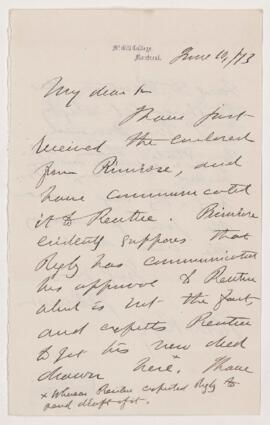 McGill College,
Montreal.
June 10, /73
My dear Sir
I have just
received the enclosed
from Primrose, and
have communicated
it to Rentue. Primrose
evidently supposes that
Rigby has communicated
his approval to Rentue
which is not the fact
and expects Rentue
to get his new deed
drawn here*. I have
* Whereas Rentue expected Rigby to
send draft of it.